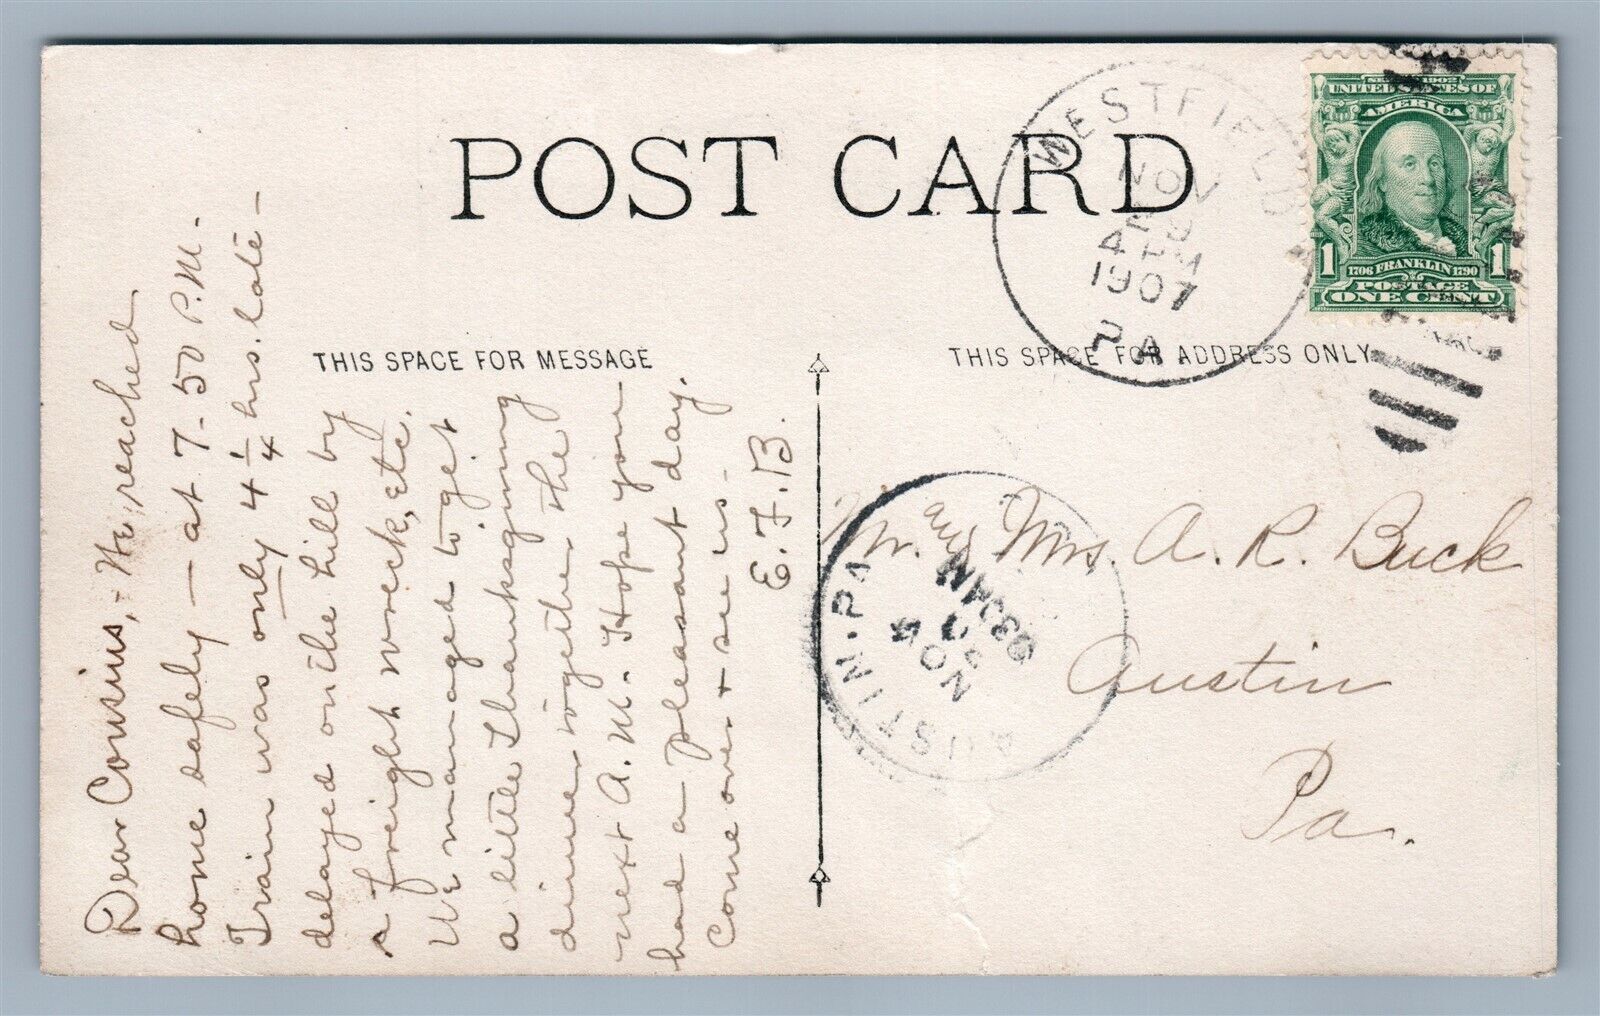 POST CARD
THIS SPACE FOR MESSAGE
THIS SPACE FOR ADDRESS ONLY
WESTFIELD
NOV
29
4 PM
1907
PA
SERIES 1902
UNITED STATES OF
AMERICA
1 1706 FRANKLIN 1790 1
POSTAGE
ONE CENT
Dear Cousins,- We reached
home safely — at 7-50 P.M.
Train was only 4 1/4 hrs. late -
delayed on the hill by
a freight wreck, etc.
We managed to get
a little Thanksgiving
dinner together the
next A.M. Hope you
had a pleasant day.
Come over + see us -
E. F. B.
AUSTIN. PA
NOV
30
930AM
Mr. and Mrs. A. R. Buck
Austin
Pa.